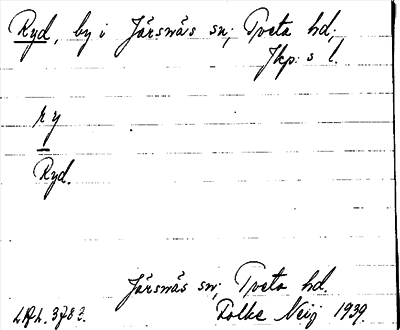 Ryd, by i Järsnäs sn; Tveta hd;
Jkp: s l.
ry
Ryd.
Järsnäs sn; Tveta hd.
Folke Neij 1939.